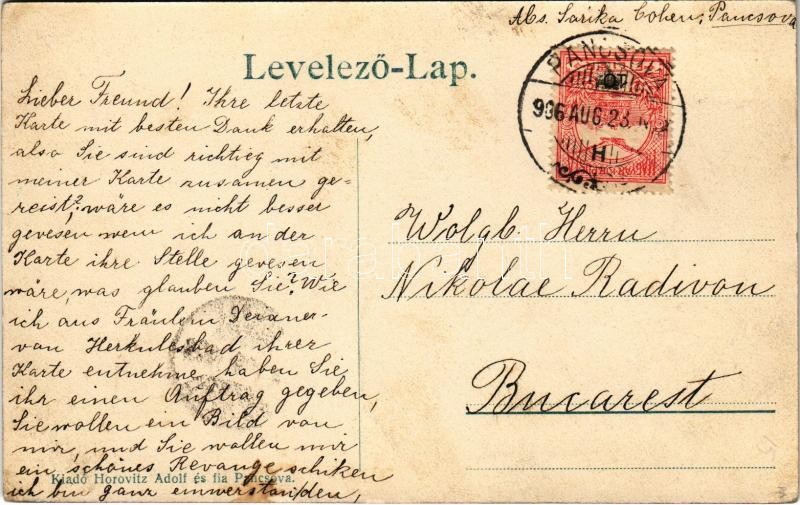 Abs. Sarika Cohen, Pancsova
Levelező-Lap.
PANCSOVA
906 AUG 23.
H
MAGYAR KIR. POSTA
Lieber Freund! Ihre letzte
Karte mit besten Dank erhalten,
also Sie sind richtieg mit
meiner Karte zusamen ge-
reist?, wäre es nicht besser
gevesen wenn ich an der
Karte ihre Stelle gevesen
wäre, was glauben Sie? Wie
ich aus Fräulein
von Herkulesbad ihrer
Karte entnehme haben Sie
ihr einen Auftrag gegeben,
Sie wollen ein Bild von
mir, und Sie wollen mir
ein schönes Revange schiken
ich bin ganz einverstanden,
Wolgb. Herrn
Nikolae Radivon
Bucarest
Kiadó Horovitz Adolf és fia Pancsova.
darabanth